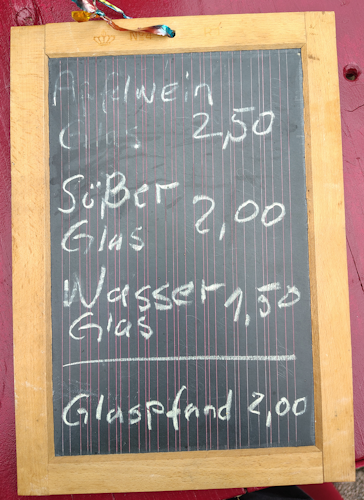 Apfelwein
Glas 2,50
Süßer
Glas 2,00
Wasser 1,50
Glas
Glaspfand 2,00